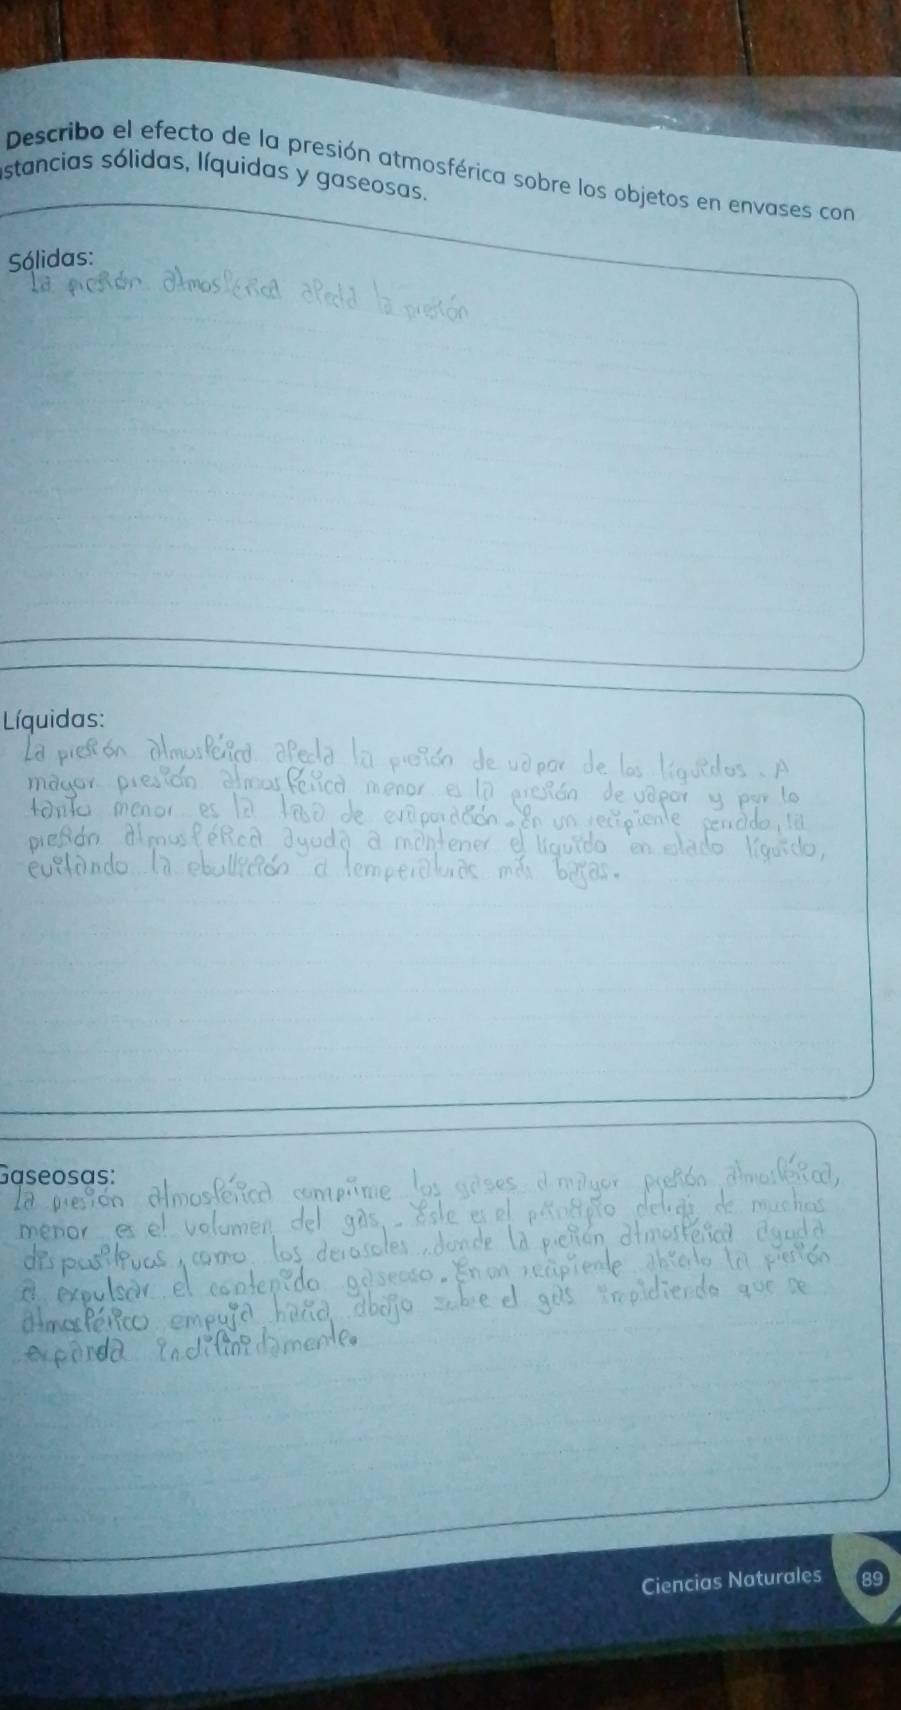 Describo el efecto de la presión atmosférica sobre los objetos en envases con
stancias sólidas, líquidas y gaseosas.
Sólidas:
La presión atmosferica afecta la presión
Líquidas:
La presión atmosférica afecta la presión de vapor de los líquidos. A
mayor presión atmosférica menor es la presión de vapor y por lo
tanto menor es la tasa de evaporación. En un recipiente cerrado, la
presión atmosférica ayuda a mantener el liquido en estado líquido,
evitando la ebullición a temperaturas más bajas.
Gaseosas:
la presión atmosférica comprime los gases a mayor presión atmosférica,
menor es el volumen del gas. Este es el principio detrás de muchos
dispositivos, como los aerosoles, donde la presión atmosférica ayuda
a expulsar el contenido gaseoso. En un recipiente abierto la presión
atmosférica empuja hacia abajo sobre el gas impidiendo que se
expanda indifinidamente.
Ciencias Naturales
89